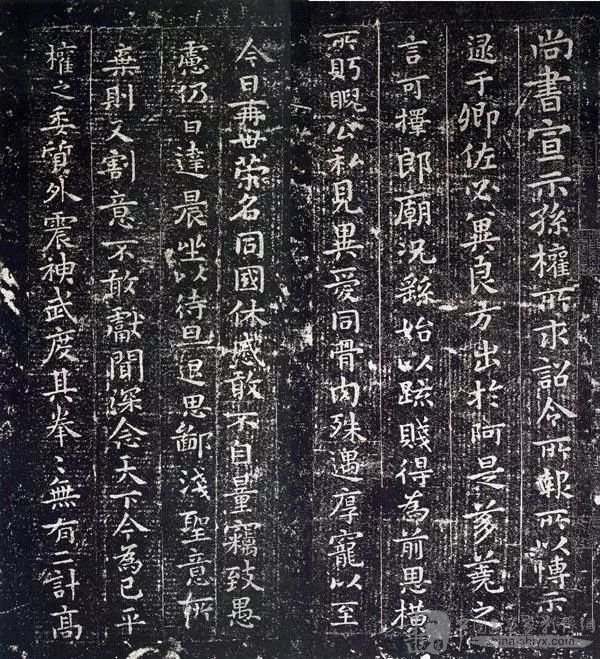 尚書宣示孫權所求詔令所報所以博示
逮于卿佐必兾良方出於阿是芻蕘之
言可擇郎廟況繇始以疏賤得為前恩橫
所眄睨公私見異愛同骨肉殊遇厚寵以至
今日再世榮名同國休慼敢不自量竊致愚
慮仍日達晨坐以待旦退思鄙淺聖意所
棄則又割意不敢獻聞深念天下今為已平
權之委質外震神武度其拳〻無有二計高